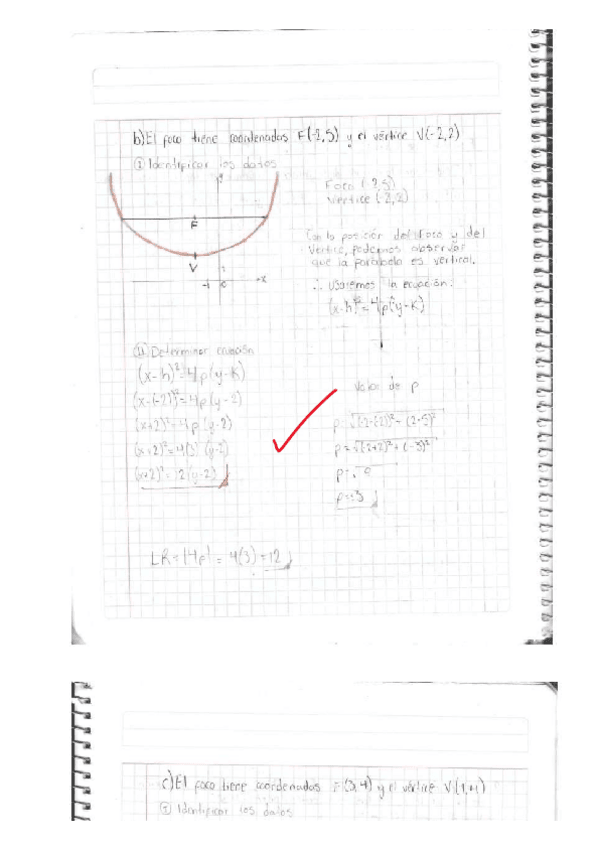 b) El foco tiene coordenadas F(-2,5) y el vértice V(-2,2)
① Identificar los datos
Foco (-2,5)
Vértice (-2,2)
y
F
V
1
-1 0
x
Con la posición del foco y del
vértice, podemos observar
que la parábola es vertical.
∴ Usaremos la ecuación:
(x-h)²=4p(y-k)
② Determinar ecuación
(x-h)²=4p(y-k)
(x-(-2))²=4p(y-2)
(x+2)²=4p(y-2)
(x+2)²=4(3)(y-2)
(x+2)²=12(y-2)
Valor de p
p=√(-2-(-2))²-(2-5)²
p=√(-2+2)²+(-3)²
p=√9
LR=|4p|=4(3)=12
c) El foco tiene coordenadas F(3,4) y el vértice
① Identificar los datos